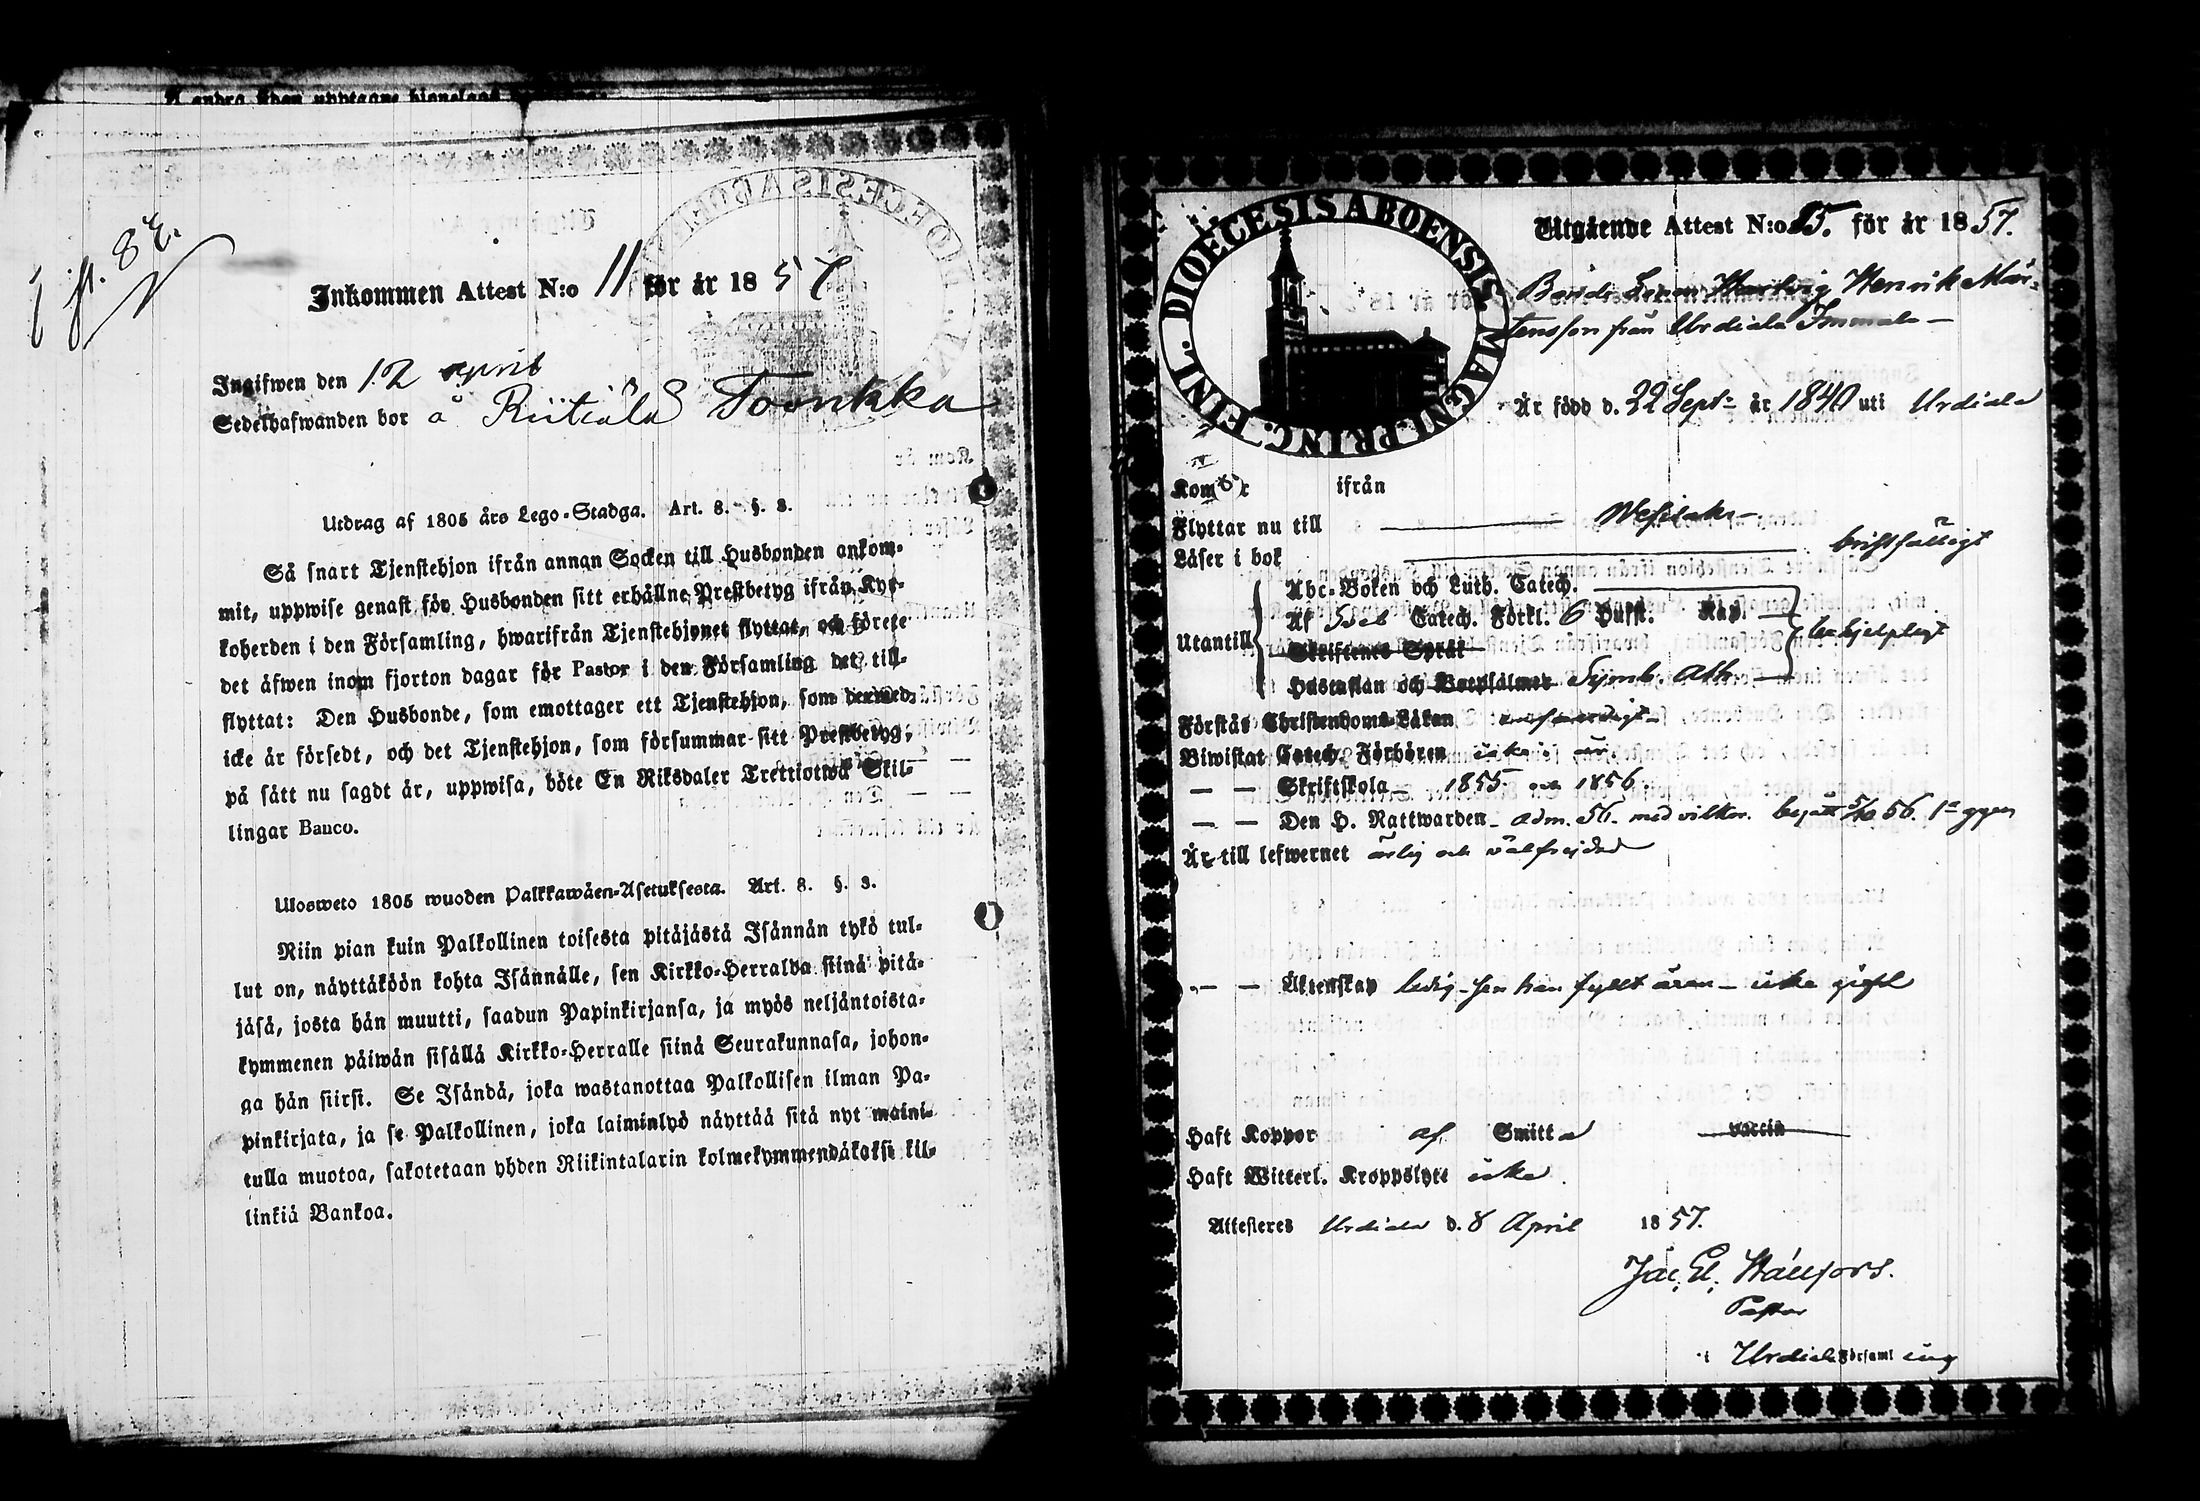 ſt. 82.
Inkommen Attest N:o 11 för år 1857
Ingifwen den 12 april
Sedelhafwanden bor å Riitiala Toonkka
Utdrag af 1805 års Lego-Stadga. Art. 8. §. 3.
Så ſnart Tjenſtehjon ifrån annan Socken till Husbonden ankom-
mit, uppwiſe genaſt för Husbonden ſitt erhållne Preſtbetyg ifrån Kyr-
koherden i den Förſamling, hwarifrån Tjenſtehjonet flyttat, och förete
det äfwen inom fjorton dagar för Pastor i den Förſamling det till-
flyttat: Den Husbonde, ſom emottager ett Tjenſtehjon, ſom dermed
icke är förſedt, och det Tjenſtehjon, ſom förſummar ſitt Preſtbetyg,
på ſätt nu ſagdt är, uppwiſa, böte En Riksdaler Trettiotwå Skil-
lingar Banco.
Ulosweto 1805 wuoden Palkkawäen-Aſetukſesta. Art. 8. §. 3.
Niin pian kuin Palkollinen toiſesta pitäjästä Iſännän tykö tul-
lut on, näyttäköön kohta Iſännälle, ſen Kirkko-Herralda ſiinä pitä-
jäſä, josta hän muutti, ſaadun Papinkirjanſa, ja myös neljäntoista-
kymmenen päiwän ſiſällä Kirkko-Herralle ſiinä Seurakunnaſa, johon-
ga hän ſiirſi. Se Iſändä, joka wastanottaa Palkolliſen ilman Pa-
pinkirjata, ja ſe Palkollinen, joka laiminlyö näyttää ſitä nyt maini-
tulla muotoa, ſakotetaan yhden Riikintalarin kolmekymmendäkakſi kil-
linkiä Bankoa.
DIOECESIS ABOENSIS MAGNI. PRINC. FINL.
Utgående Attest N:o 15. för år 1857.
Bonde Sonen Hartvig Henrik Mår-
tensson från Urdiala Immala
Är född d. 22 Sept. år 1840 uti Urdiala
Kom år ifrån
Flyttar nu till Wesilaks
Läſer i bok bristfälligt
Abc-Boken och Luth. Catech.
Utantill Af Catech. Förkl. 6 Hufſt. Kap. behjelpligt
Skriftenes Språk
Hustaflan och Botpſalmer Symb. Ath.
Förſtår Chriſtendoms-Läran
Biwiſtat Catech. Förhören icke i år
— — Skriftſkola 1855 och 1856.
— — Den H. Nattwarden adm. 56. med vilkor. begått 5/10 56. 1a ggen
Är till lefwernet ärlig och välfrejdad
— — Äktenſkap ledig - fen han fyllt åren - icke gift
Haft Koppor af Smitta vaccin
Haft Witterl. Kroppslyte icke
Atteſteres Urdiala d. 8 April 1857.
Jac. El. Hällfors.
Pastor
i Urdiala Förſamling